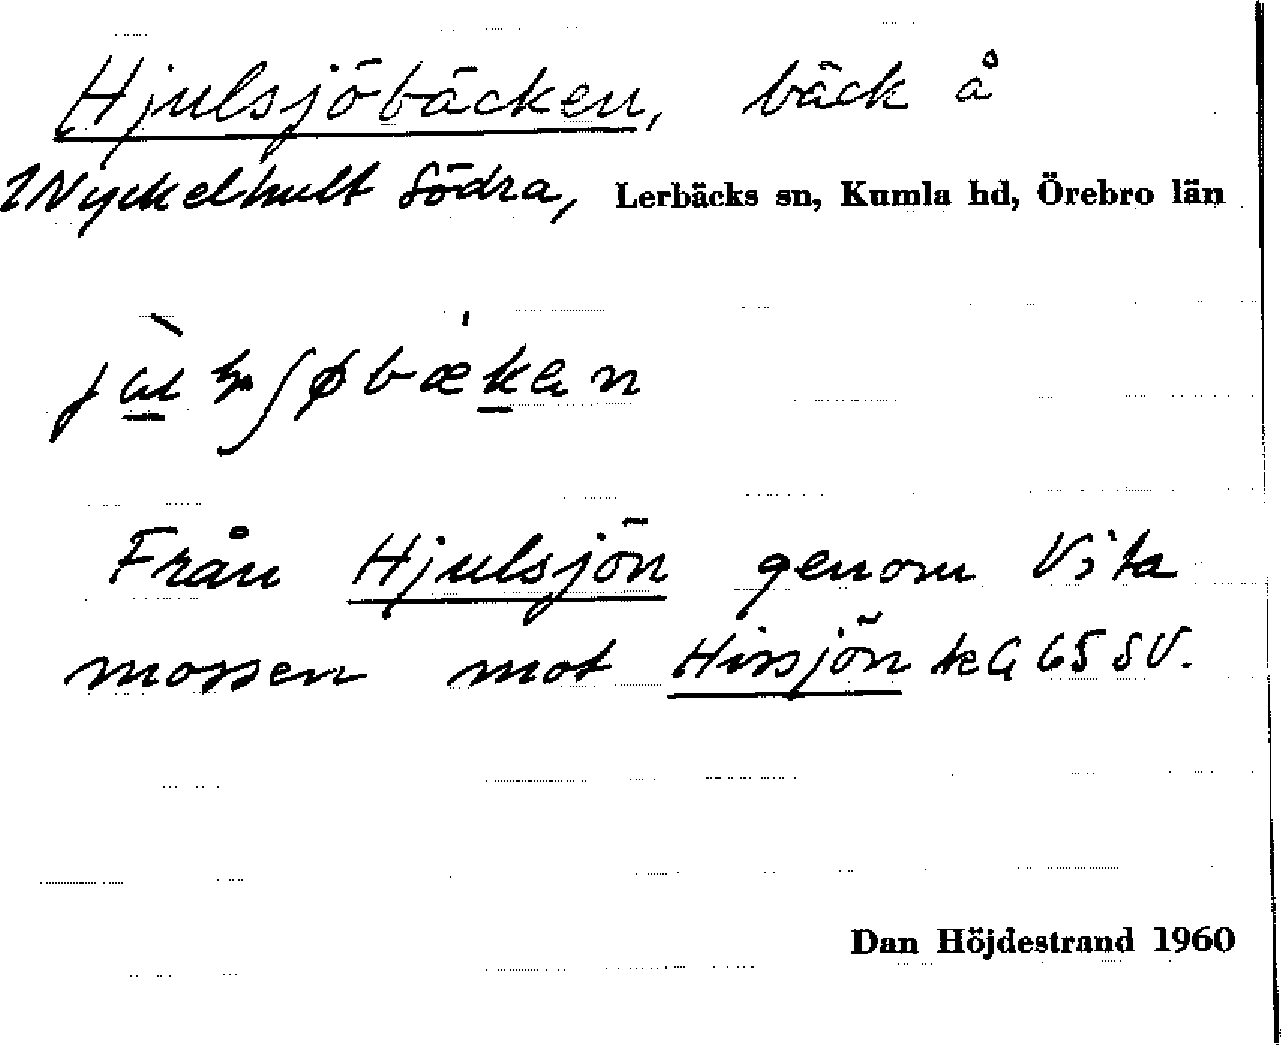 Hjulsjöbäcken, bäck å
1 Nyckelhult Södra, Lerbäcks sn, Kumla hd, Örebro län
Från Hjulsjön genom Vita
mossen mot Hissjön kG 65 SV.
Dan Höjdestrand 1960